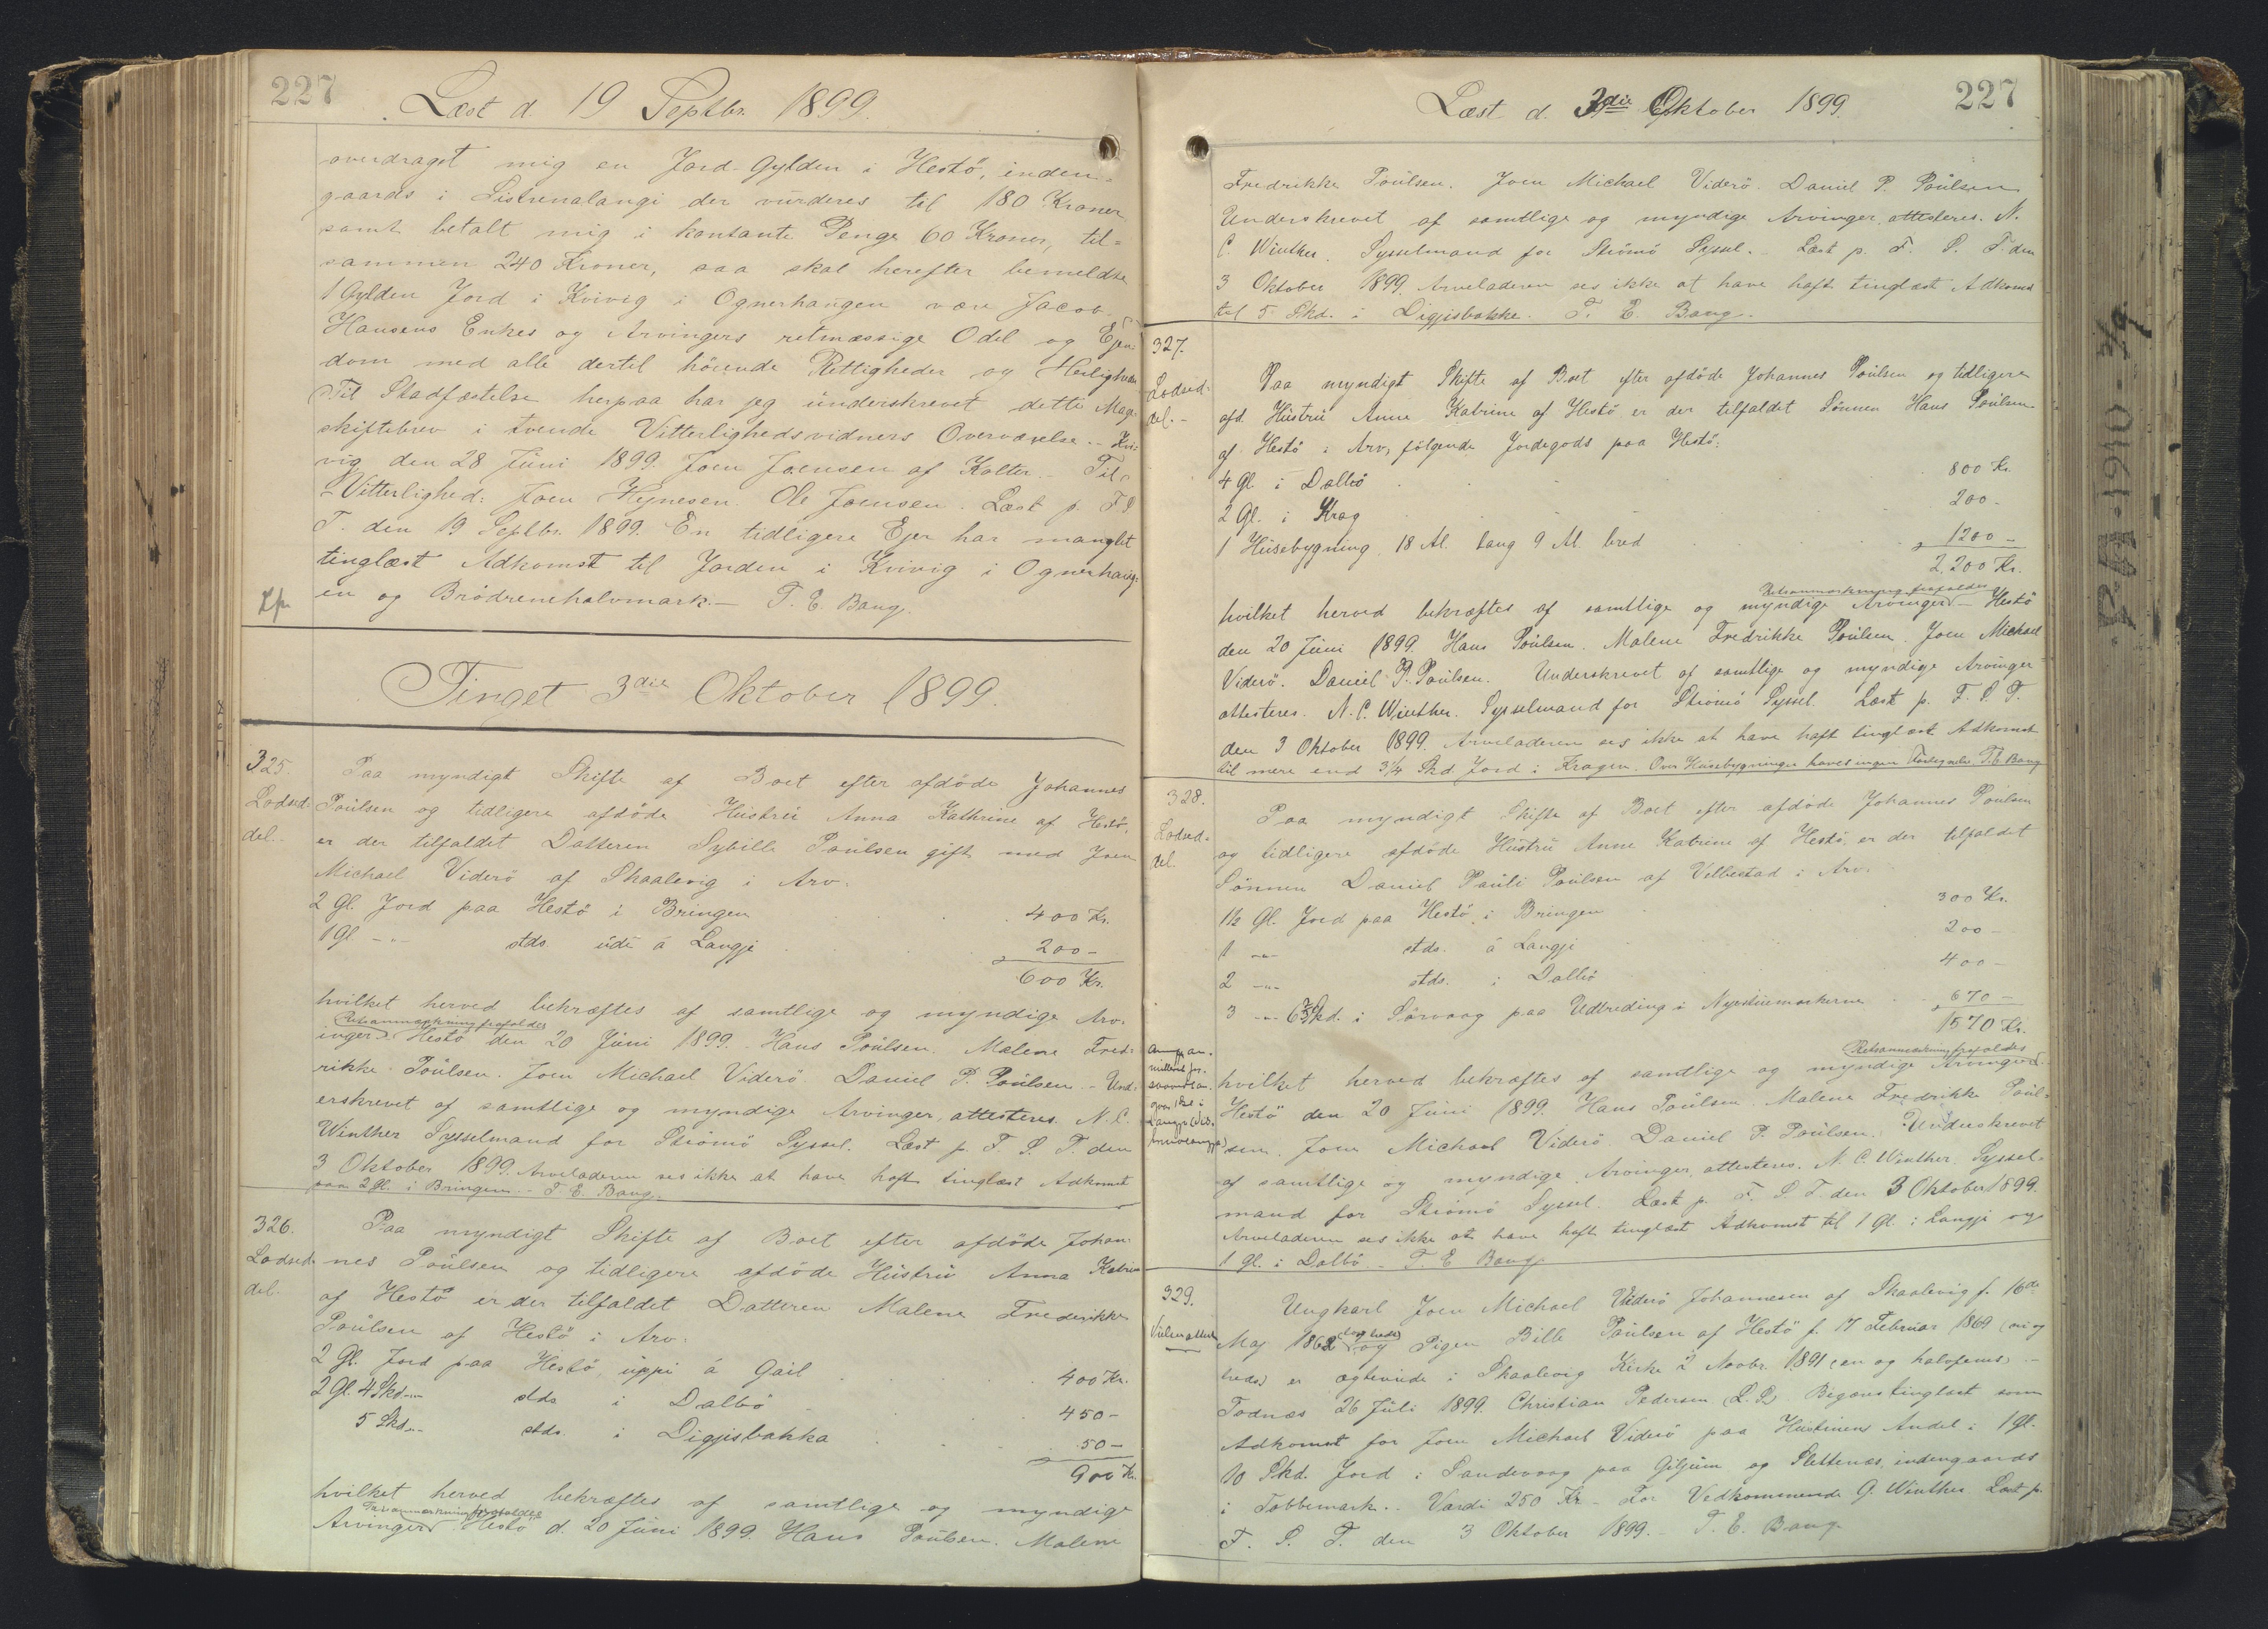 227
Læst d. 19 Septbr. 1899.
overdraget mig en Jord-Gylden i Hestö, inden-
gaards i Listrenalangi der vurderes til 180 Kroner
samt betalt mig i kontante Penge 60 Kroner, til=
sammen 240 Kroner, saa skal herefter bemeldte
1 Gylden Jord i Kvivig i Ognerhaugen være Jacob
Hansens Enkes og Arvingers retmæssige Odel og Ejen-
dom med alle dertil hörende Rettigheder og Herlighed
Til Stadfæstelse herpaa har jeg underskrevet dette Mage-
skiftebrev i tvende Vitterlighedsvidners Overværelse. - Kvi-
vig den 28 Juni 1899. Joen Joensen af Kolter. Til
Vitterlighed: Joen Hejnesen. Ole Joensen. Læst p. F. S.
T. den 19 Septbr. 1899. En tidligere Ejer har manglet
tinglæst Adkomst til Jorden i Kvivig i Ognerhaug-
en og Brödrenehalvmark. - T. E. Bang.
Tinget 3die Oktober 1899.
325.
Lodsed-
del.
Paa myndigt Skifte af Boet efter afdöde Johannes
Poulsen og tidligere afdöde Hustru Anna Kathrine af Hestö,
er der tilfaldet Datteren Sybille Poulsen gift med Joen
Michael Viderö af Skaalevig i Arv.
2 Gl. Jord paa Hestö i Bringen 400 Kr.
1 Gl. -"- stds. udi á Langji 200 -
600 Kr.
hvilket herved bekræftes af samtlige og myndige Arv-
Retsanmærkning frafaldes
inger. Hestö den 20 Juni 1899. Hans Poulsen. Malene Fred-
rikke Poulsen. Joen Michael Viderö. Daniel P. Poulsen. - Und-
erskrevet af samtlige og myndige Arvinger, attesteres. N. C.
Winther Sysselmand for Strömö Syssel. Læst p. F. S. T. den
3 Oktober 1899. Arveladeren ses ikke at have haft tinglæst Adkomst
paa 2 Gl. i Bringen. - T. E. Bang.
326.
Lodsed-
del.
Paa myndigt Skifte af Boet efter afdöde Johan-
nes Poulsen og tidligere afdöde Hustru Anna Katrine
af Hestö er der tilfaldet Datteren Malene Frederikke
Poulsen af Hestö i Arv:
2 Gl. Jord paa Hestö, uppi á Gail 400 Kr.
2 Gl. 4 Skd. -"- stds. i Dalbö 450 -
5 Skd. -"- stds. i Digjisbakka 50 -
900 Kr.
hvilket herved bekræftes af samtlige og myndige
Retsanmærkning frafaldes
Arvinger. Hestö d. 20 Juni 1899. Hans Poulsen. Malene
227
Læst d. 3die Oktober 1899.
Fredrikke Poulsen. Joen Michael Viderö. Daniel P. Poulsen
Underskrevet af samtlige og myndige Arvinger, attesteres. N.
C. Winther. Sysselmand for Strömö Syssel. - Læst p. F. S. T. den
3 Oktober 1899. Arveladeren ses ikke at have haft tinglæst Adkomst
til 5 Skd. i Digjisbakke. T. E. Bang.
327.
Lodsed-
del. -
Paa myndigt Skifte af Boet efter afdöde Johannes Poulsen og tidligere
afd. Hustru Anne Katrine af Hestö er der tilfaldet Sönnen Hans Poulsen
af Hestö i Arv, fölgende Jordegods paa Hestö:
4 Gl. i Dalbö 800 Kr.
2 Gl. i Krag 200 -
1 Husebygning 18 Al. lang 9 Al. bred 1200 -
2.200 Kr.
Retsanmærkning frafaldes
hvilket herved bekræftes af samtlige og myndige Arvinger - Hestö
den 20 Juni 1899. Hans Poulsen. Malene Fredrikke Poulsen. Joen Michael
Viderö. Daniel P. Poulsen. Underskrevet af samtlige og myndige Arvinger
attesteres. N. C. Winther. Sysselmand for Strömö Syssel. Læst p. F. S. T.
den 3 Oktober 1899. Arveladeren ses ikke at have haft tinglæst Adkomst
til mere end 3 1/4 Skd. Jord i Kragen. Over Husebygninger haves ingen T. E. Bang
328.
Lodsed-
del.
Paa myndigt Skifte af Boet efter afdöde Johannes Poulsen
og tidligere afdöde Hustru Anne Katrine af Hestö, er der tilfaldet
Sönnen Daniel Pauli Poulsen af Velbestad i Arv.
1½ Gl. Jord paa Hestö i Bringen 300 Kr.
1 -"- stds. á Langji 200 -
2 -"- stds. i Dalbö 400 -
3 -"- 6 Skd. i Sörvaag paa Udbreding i Nyestuemarkerne 670 -
1570 Kr.
Retsanmærkning frafaldes
hvilket herved bekræftes af samtlige og myndige Arvinger.
Hestö den 20 Juni 1899. Hans Poulsen. Malene Fredrikke Poul-
sen. Joen Michael Viderö. Daniel P. Poulsen. Underskrevet
af samtlige og myndige Arvinger, attesteres. N. C. Winther. Syssel-
mand for Strömö Syssel. Læst p. F. S. T. den 3 Oktober 1899.
Arveladeren ses ikke at have haft tinglæst Adkomst til 1 Gl. i Langji og
1 Gl. i Dalbö. - T. E. Bang
329.
Vielsesattest
Ungkarl Joen Michael Viderö Johannesen af Skaalevig f. 16de
Maj 1862 og Pigen Bille Poulsen af Hestö f. 17 Februar 1869 (ni og
treds) er ægteviede i Skaalevig Kirke 2 Novbr. 1891 (en og halvfems). -
Todnæs 26 Juli 1899. Christian Pedersen (L. S.) Begæres tinglæst som
Adkomst for Joen Michael Viderö paa Hustruens Andel i 1 Gl.
10 Skd. Jord i Sandevaag paa Giljum og Slettenæs, indengaards
i Tobbemark. - Værdi 250 Kr. - For Vedkommende G. Winther. Læst p.
F. S. T. den 3 Oktober 1899. - T. E. Bang